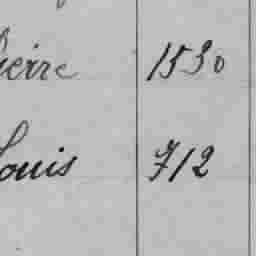 Pierre 1530
Louis 712